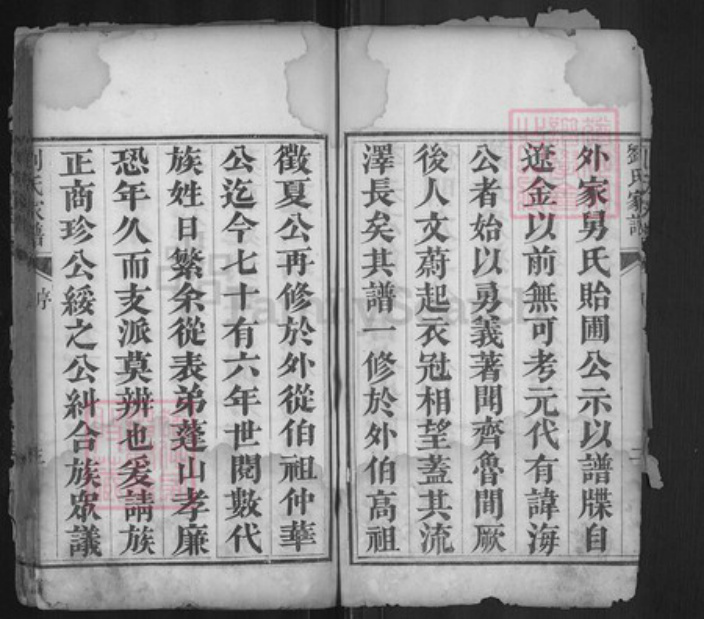 劉氏家譜
外家舅氏貽圃公示以譜牒自
遼金以前無可考元代有諱海
公者始以勇義著聞齊魯間厥
後人文蔚起衣冠相望蓋其流
澤長矣其譜一修於外伯高祖
徵夏公再修於外從伯祖仲華
公迄今七十有六年世閱數代
族姓日繁余從表弟蓬山孝廉
恐年久而支派莫辨也爰請族
正商珍公綏之公糾合族眾議
劉氏家譜
序
FamilySearch